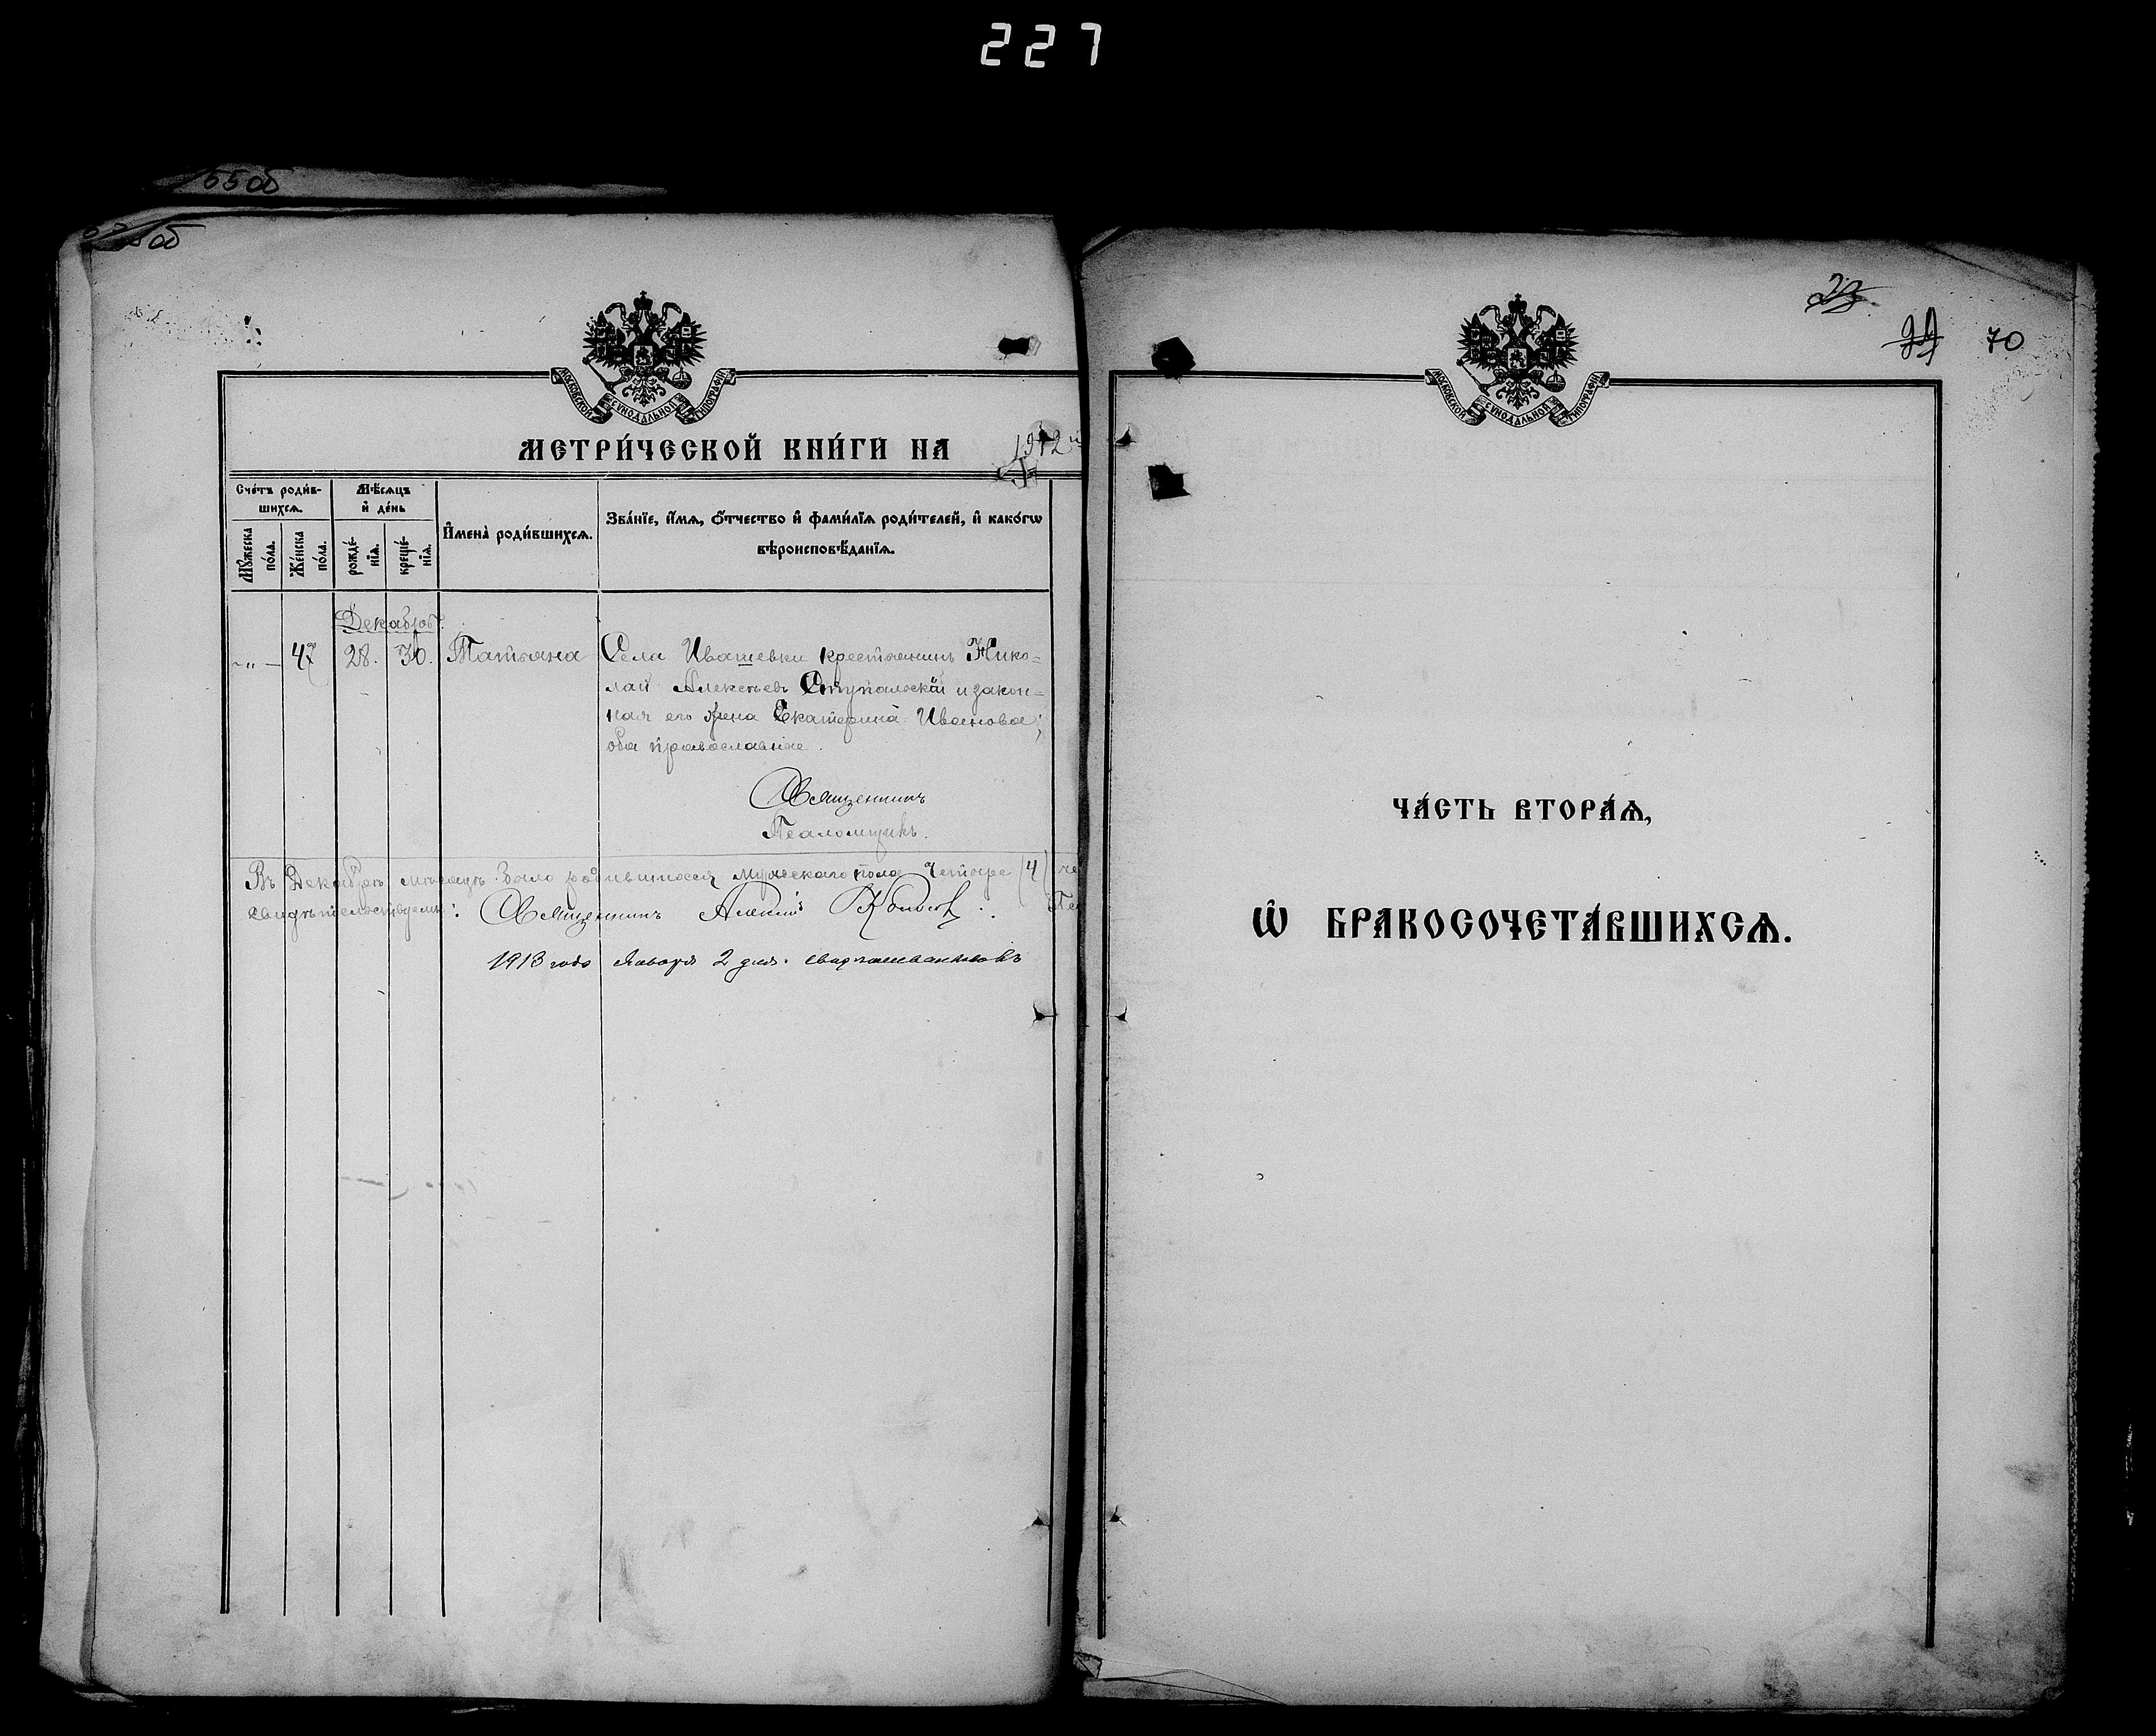 227
55 об
об
МОСКОВСКОЙ СѴНОДАЛЬНОЙ ТИПОГРАФІИ
МЕТРИ́ЧЕСКОЙ КНИ́ГИ НА 1912
Сче́тъ роди́в-
шихсѧ.
Мѣ́сѧцъ
и҆ де́нь
Мꙋ́жеска
по́ла.
Же́нска
по́ла.
рожде́-
нїѧ.
креще́-
нїѧ.
И҆мена̀ роди́вшихсѧ.
Зва́нїе, и҆́мѧ, ѻ҆́тчество и҆ фами́лїѧ роди́телей, и҆ како́гѡ
вѣроисповѣ́данїѧ.
Декабрь.
-„- 47 28. 30. Татьяна Села Ивашевки крестьянинъ Нико-
лай Алексѣевъ Ступальскій и закон-
ная его жена Екатерина Иванова;
оба православные.
Священникъ
Псаломщикъ.
Въ Декабрѣ мѣсяцѣ было родившихся мужескаго пола четыре (4)
свидѣтельствуемъ: Священникъ Алексій
1913 года Января 2 дня.
23
70
МОСКОВСКОЙ СѴНОДАЛЬНОЙ ТИПОГРАФІИ
ЧА́СТЬ ВТОРА́Ѧ,
Ѡ҆ БРАКОСОЧЕТА́ВШИХСѦ.